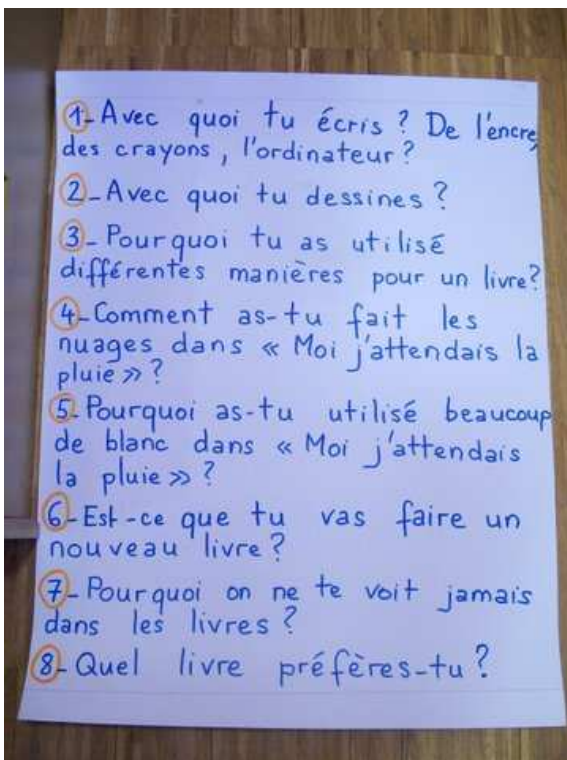 1- Avec quoi tu écris ? De l'encre,
des crayons, l'ordinateur ?
2- Avec quoi tu dessines ?
3- Pourquoi tu as utilisé
différentes manières pour un livre ?
4- Comment as-tu fait les
nuages dans « Moi j'attendais la
pluie » ?
5- Pourquoi as-tu utilisé beaucoup
de blanc dans « Moi j'attendais
la pluie » ?
6- Est-ce que tu vas faire un
nouveau livre ?
7- Pourquoi on ne te voit jamais
dans les livres ?
8- Quel livre préfères-tu ?